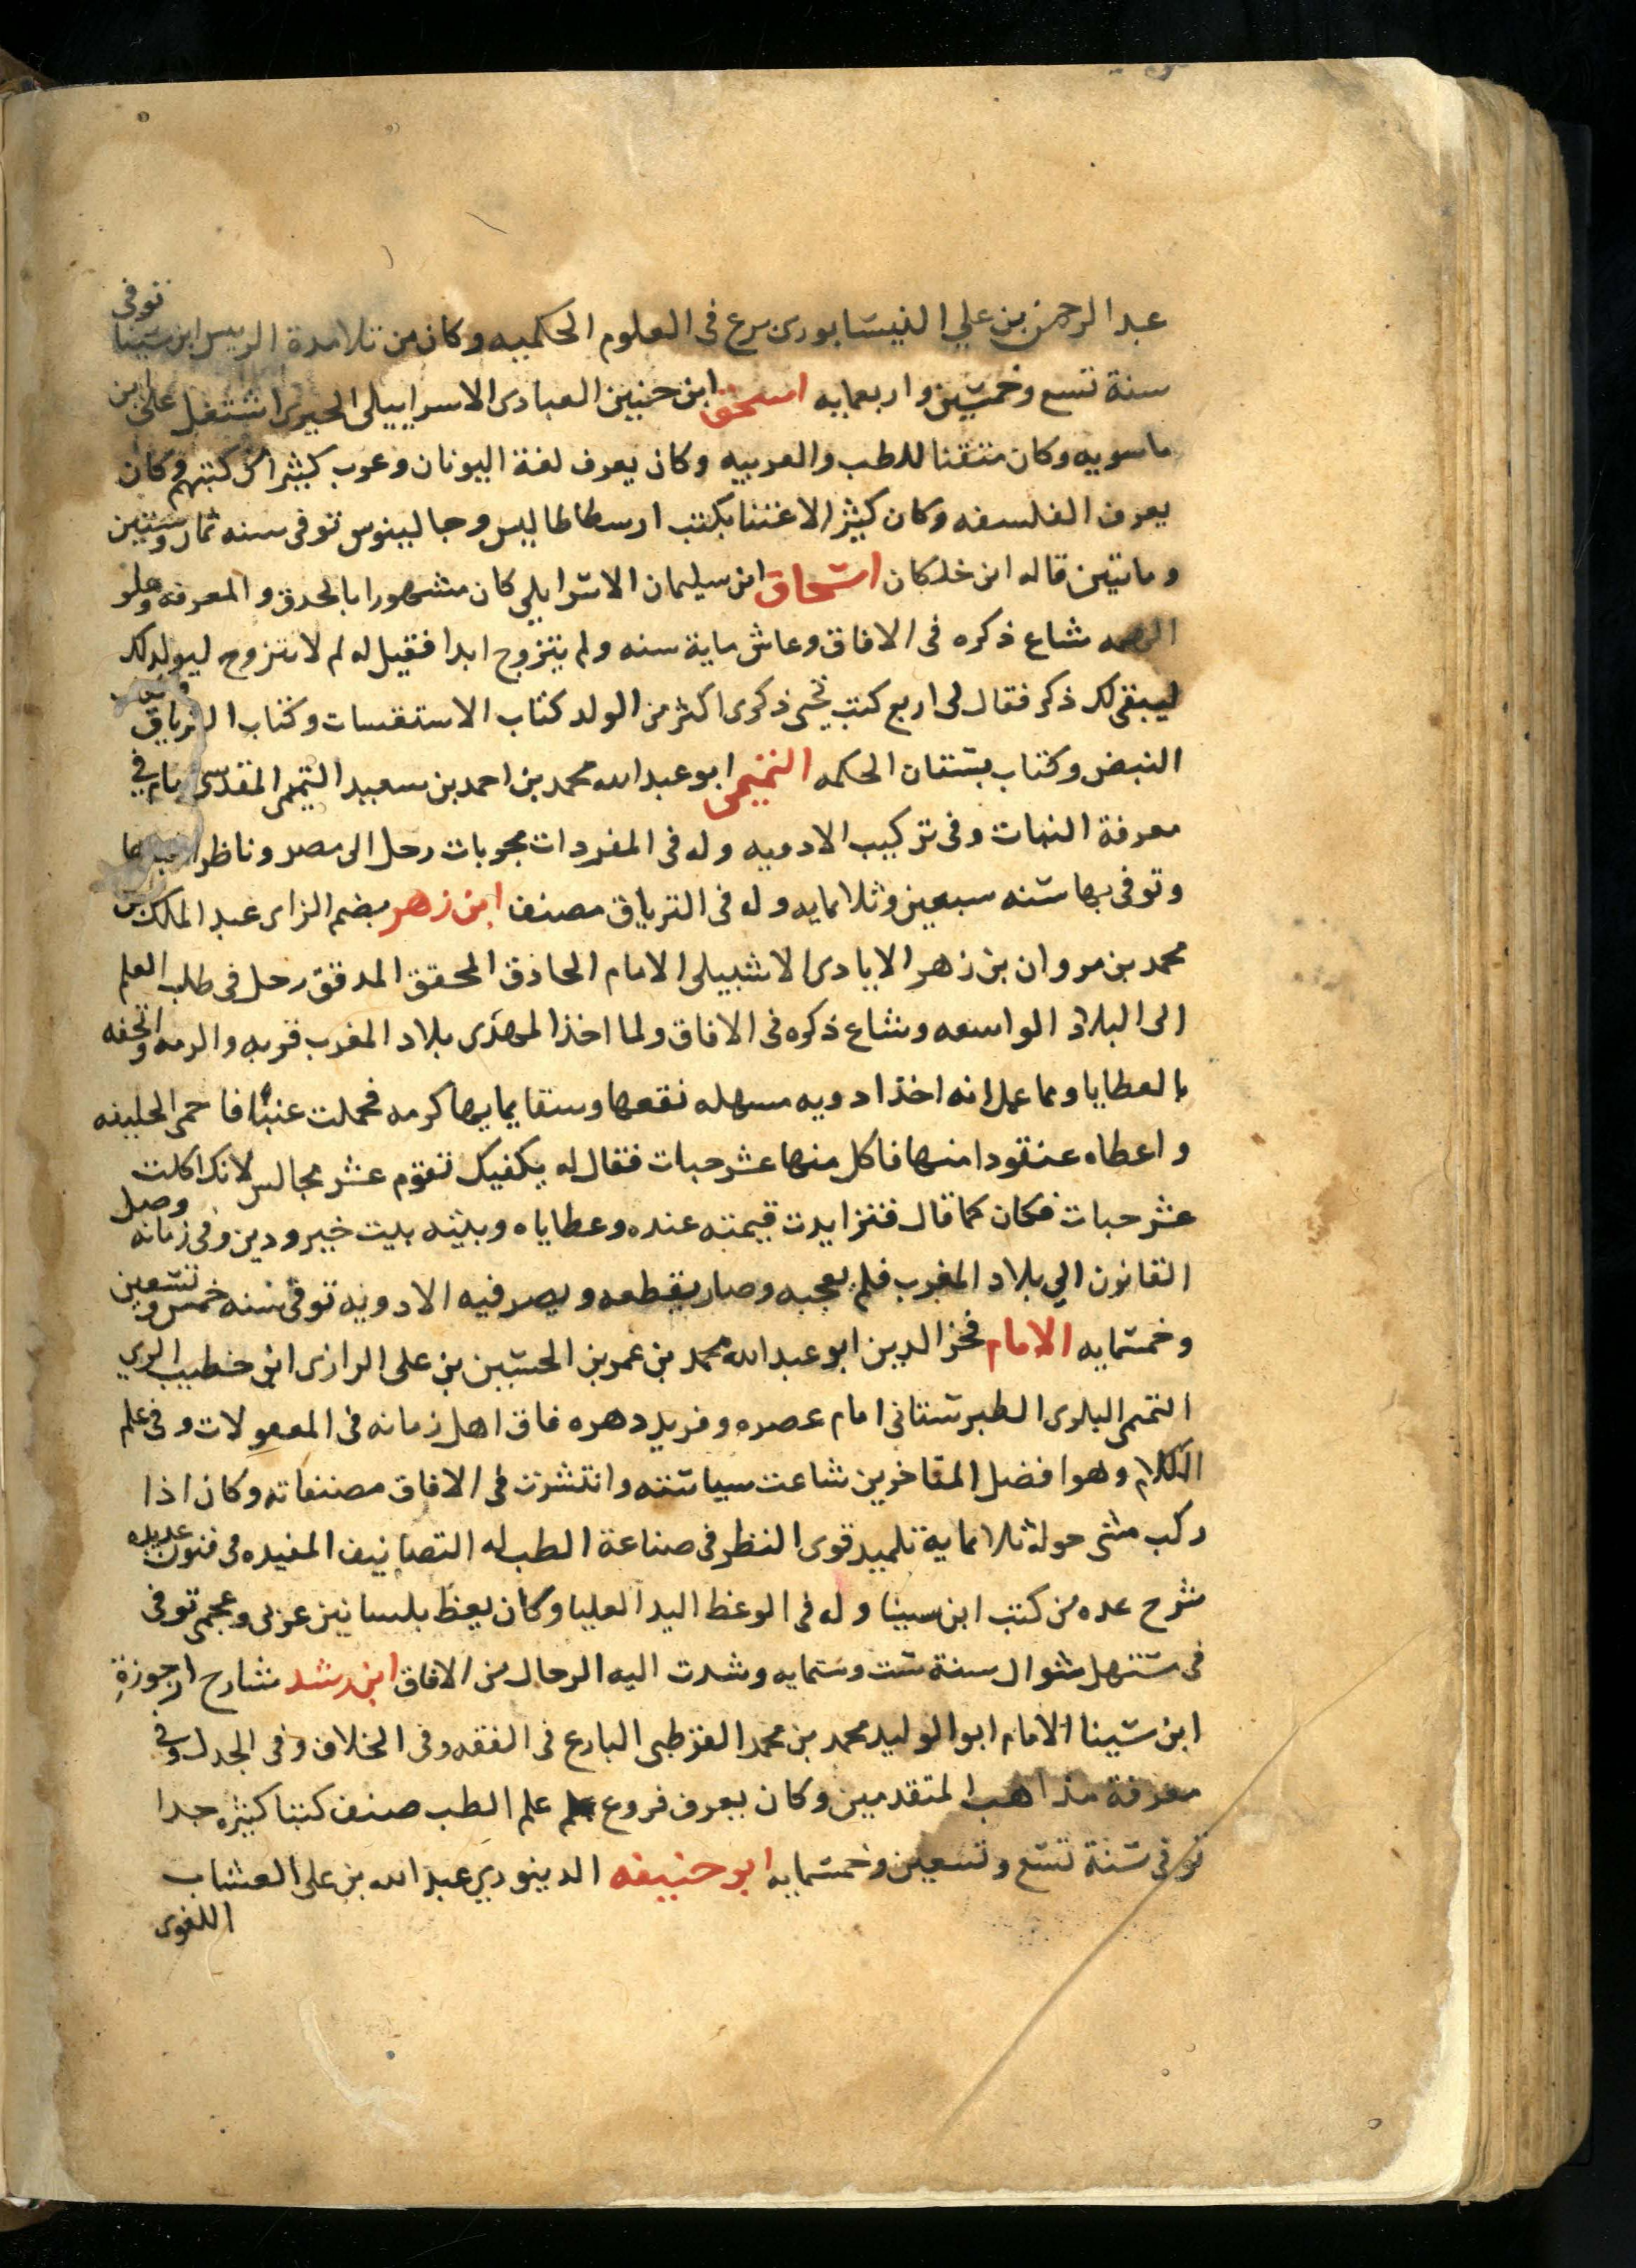 عبد الرحمن بن علي النيسابورى برع فى العلوم الحكميه وكان من تلامدة الريس ابن سينا توفى
سنة تسع وخمسين واربعمايه اسحق ابن حنين العبادى الاسراييلى الحيرى اشتغل على ابن
ماسويه وكان متقنا للطب والعربيه وكان يعرف لغة اليونان وعرب كثيرا من كتبهم وكان
يعرف الفلسفه وكان كثير الاعتنا بكتب ارسطاطاليس وجالينوس توفى سنه ثمان وستين
وماتين قاله ابن خلكان اسحاق ابن سليمان الاسرايلي كان مشهورا بالحدق والمعرفه وعلو
الهمه شاع ذكره فى الافاق وعاش ماية سنه ولم يتزوج ابدا فقيل له لم لا تتزوج ليولد لك
ليبقى لك ذكر فقال لى اربع كتب تحيى ذكرى اكثر من الولد كتاب الاستقسات وكتاب الترياق
النبض وكتاب بستان الحكمه التميمى ابو عبد الله محمد بن احمد بن سعيد التميمى المقدسى امام فى
معرفة النبات وفى تركيب الادويه وله فى المفردات مجربات رحل الى مصر وناظر
وتوفى بها سنه سبعين وثلاثمايه وله فى الترياق مصنف ابن زهر بضم الزاى عبد الملك بن
محمد بن مروان بن زهر الايادى الاشبيلى الامام الحاذق المحقق المدقق رحل فى طلب العلم
الى البلاد الواسعه وشاع ذكره فى الافاق ولما اخذ المهدى بلاد المغرب قربه والزمه واتحفه
بالعطايا ومما عمل انه اخذ ادويه مسهله نقعها وسقا بمايها كرمه فحملت عنبا فا حمى الخليفه
واعطاه عنقودا منها فاكل منها عشر حبات فقال له يكفيك تقوم عشر مجالس لانك اكلت
عشر حبات فكان كما قال فتزايدت قيمته عنده وعطاياه وبيته بيت خير ودين وفى زمانه وصل
القانون الي بلاد المغرب فلم يعجبه وصار يقطعه ويصر فيه الادويه توفى سنه خمس وتسعين
وخمسمايه الامام فخر الدين ابو عبد الله محمد بن عمر بن الحسين بن على الرازى ابن خطيب الري
التميمى البكرى الطبرستانى امام عصره وفريد دهره فاق اهل زمانه فى المعقولات وفى علم
الكلام وهو افضل المتاخرين شاعت سياسته وانتشرت فى الافاق مصنفاته وكان اذا
ركب مشى حوله ثلاثماية تلميد قوى النظر فى صناعة الطب له التصانيف المفيده فى فنون عديده
شرح عده من كتب ابن سينا وله فى الوعظ اليد العليا وكان يعظ بلسانين عربى وعجمى توفى
فى مستهل شوال سنة ست وستمايه وشدت اليه الرحال من الافاق ابن رشد شارح ارجوزة
ابن سينا الامام ابو الوليد محمد بن محمد القرطبى البارع فى الفقه وفى الخلاف وفى الجدل وفى
معرفة مذاهب المتقدمين وكان يعرف فروع علم الطب صنف كتبا كثيره جدا
توفى سنة تسع وتسعين وخمسمايه ابو حنيفه الدينوري عبد الله بن على العشاب
اللغوى